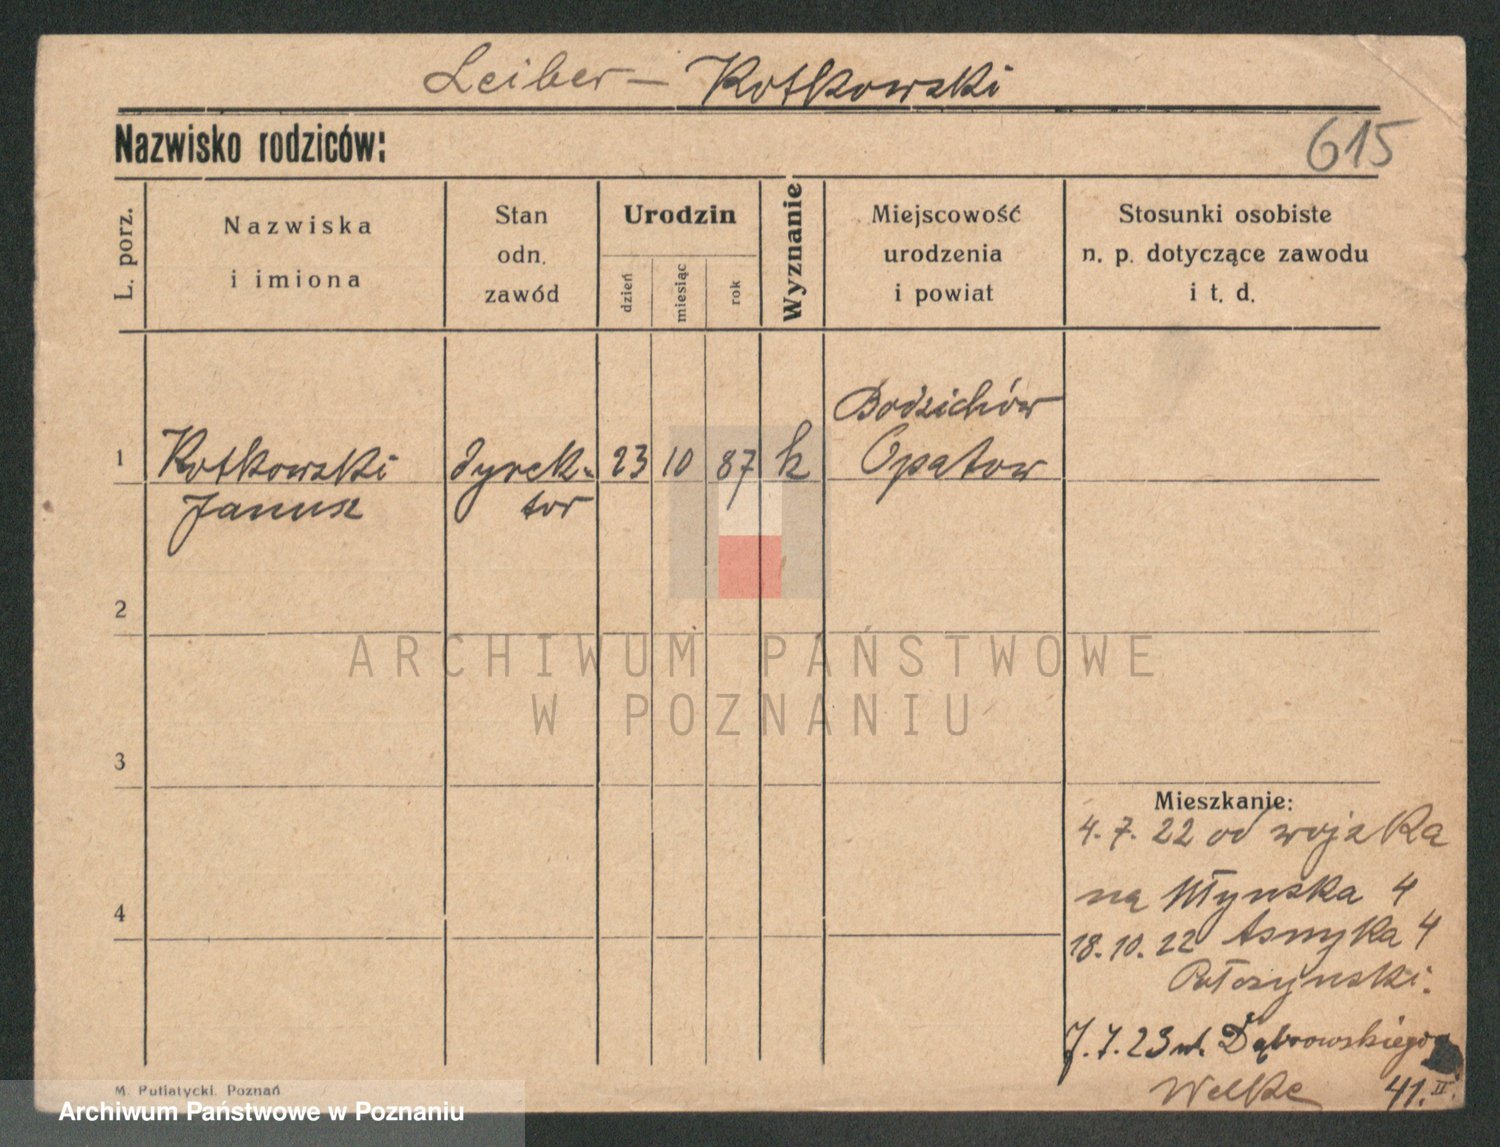 Leiber – Kotkowski
Nazwisko rodziców:
615
L. porz.
Nazwiska
i imiona
Stan
odn.
zawód
Urodzin
dzień
miesiąc
rok
Wyznanie
Miejscowość
urodzenia
i powiat
Stosunki osobiste
n. p. dotyczące zawodu
i t. d.
Bodzichów
1 Kotkowski dyrek- 23 10 87 k Opatow
Janusz tor
2
ARCHIWUM PAŃSTWOWE
W POZNANIU
3
Mieszkanie:
4. 7. 22 od wojska
na Młynska 4
4
18. 10. 22 Asnyka 4
7. 7. 23 ul. Dąbrowskiego
Welke 41. II.
M. Putiatycki, Poznań
Archiwum Państwowe w Poznaniu